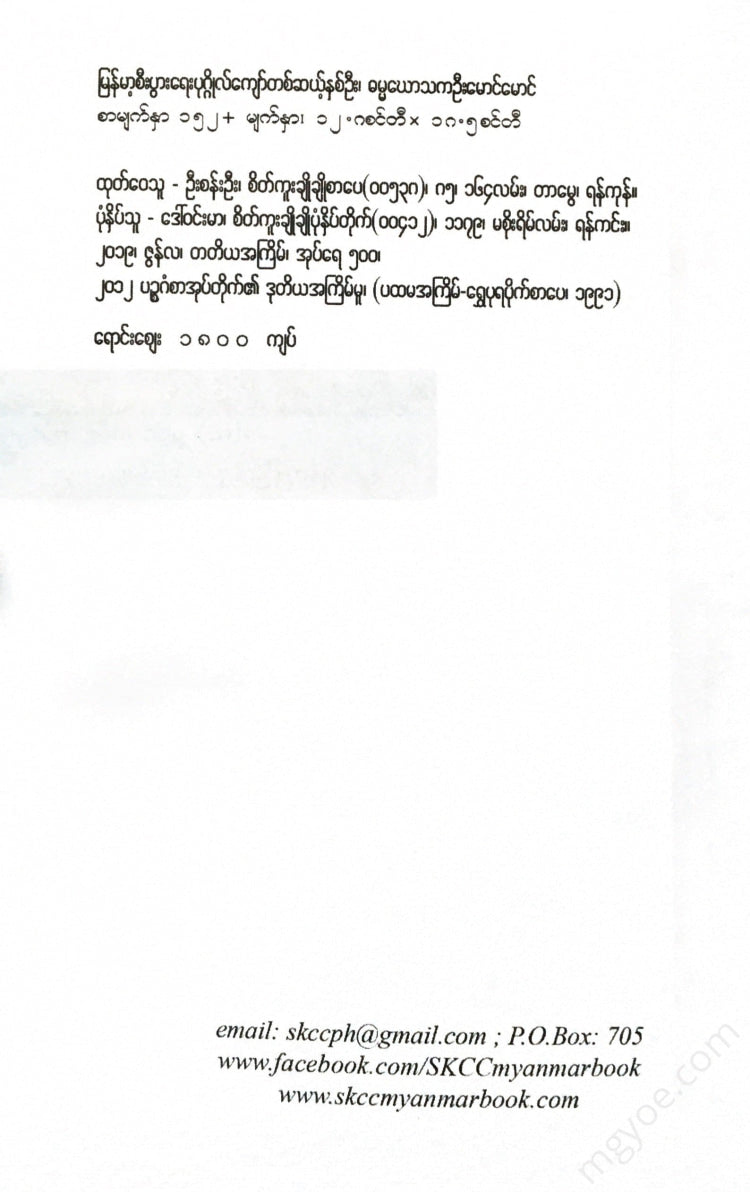 မြန်မာ့စီးပွားရေးပုဂ္ဂိုလ်ကျော်တစ်ဆယ့်နှစ်ဦး၊ ဓမ္မယောသကဦးမောင်မောင်
စာမျက်နှာ ၁၅၂+ မျက်နှာ၊ ၁၂.၈စင်တီ× ၁၈.၅စင်တီ
ထုတ်ဝေသူ - ဦးစန်းဦး၊ စိတ်ကူးချိုချိုစာပေ(၀၀၅၃၈)၊ ၈၅၊ ၁၆၄လမ်း၊ တာမွေ၊ ရန်ကုန်။
ပုံနှိပ်သူ - ဒေါ်ဝင်းမာ၊ စိတ်ကူးချိုချိုပုံနှိပ်တိုက်(၀၀၄၁၂)၊ ၁၁၇၉၊ မစိုးရိမ်လမ်း၊ ရန်ကင်း။
၂၀၁၉၊ ဇွန်လ၊ တတိယအကြိမ်၊ အုပ်ရေ ၅၀၀၊
၂၀၁၂ ပဉ္စဂံစာအုပ်တိုက်၏ ဒုတိယအကြိမ်မူ၊ (ပထမအကြိမ်-ရွှေပုရပိုက်စာပေ၊ ၁၉၉၁)
ရောင်းဈေး ၁၈၀၀ ကျပ်
email: skccph@gmail.com ; P.O.Box: 705
www.facebook.com/SKCCmyanmarbook
www.skccmyanmarbook.com
mgyoe.com